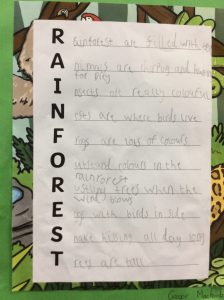 R ainforest are filled with
A nimals are chirping and
for prey
I nsects are really colourful
N ests are where birds live
F rogs are lots of colours
O utstand colours in the
rainforest
R ustling trees when the
wind blows
E gg with birds in side
S nake hissing all day long
T rees are tall